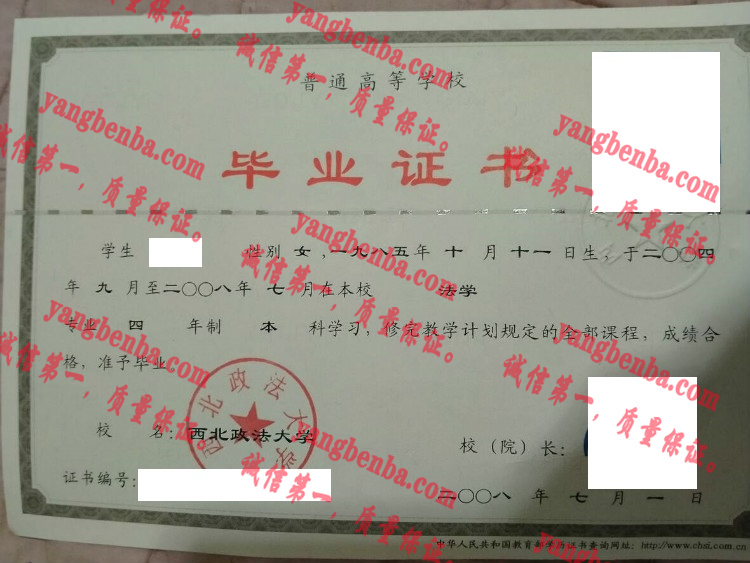 普通高等学校
毕业证书
学生 性别 女，一九八五年 十 月 十一 日生，于二〇〇四
年 九 月至二〇〇八年 七 月在本校 法学
专业 四 年制 本 科学习，修完教学计划规定的全部课程，成绩合
格，准予毕业。
校 名：西北政法大学
校（院）长：
证书编号：
二〇〇八 年 七 月 一 日
中华人民共和国教育部学历证书查询网址：http://www.chsi.com.cn
西北政法大学
yangbenba.com
诚信第一，质量保证。
yangbenba.com
诚信第一，质量保证。
yangbenba.com
诚信第一，质量保证。
yangbenba.com
诚信第一，质量保证。
yangbenba.com
诚信第一，质量保证。
yangbenba.com
诚信第一，质量保证。
yangbenba.com
诚信第一，质量保证。
yangbenba.com
诚信第一，质量保证。